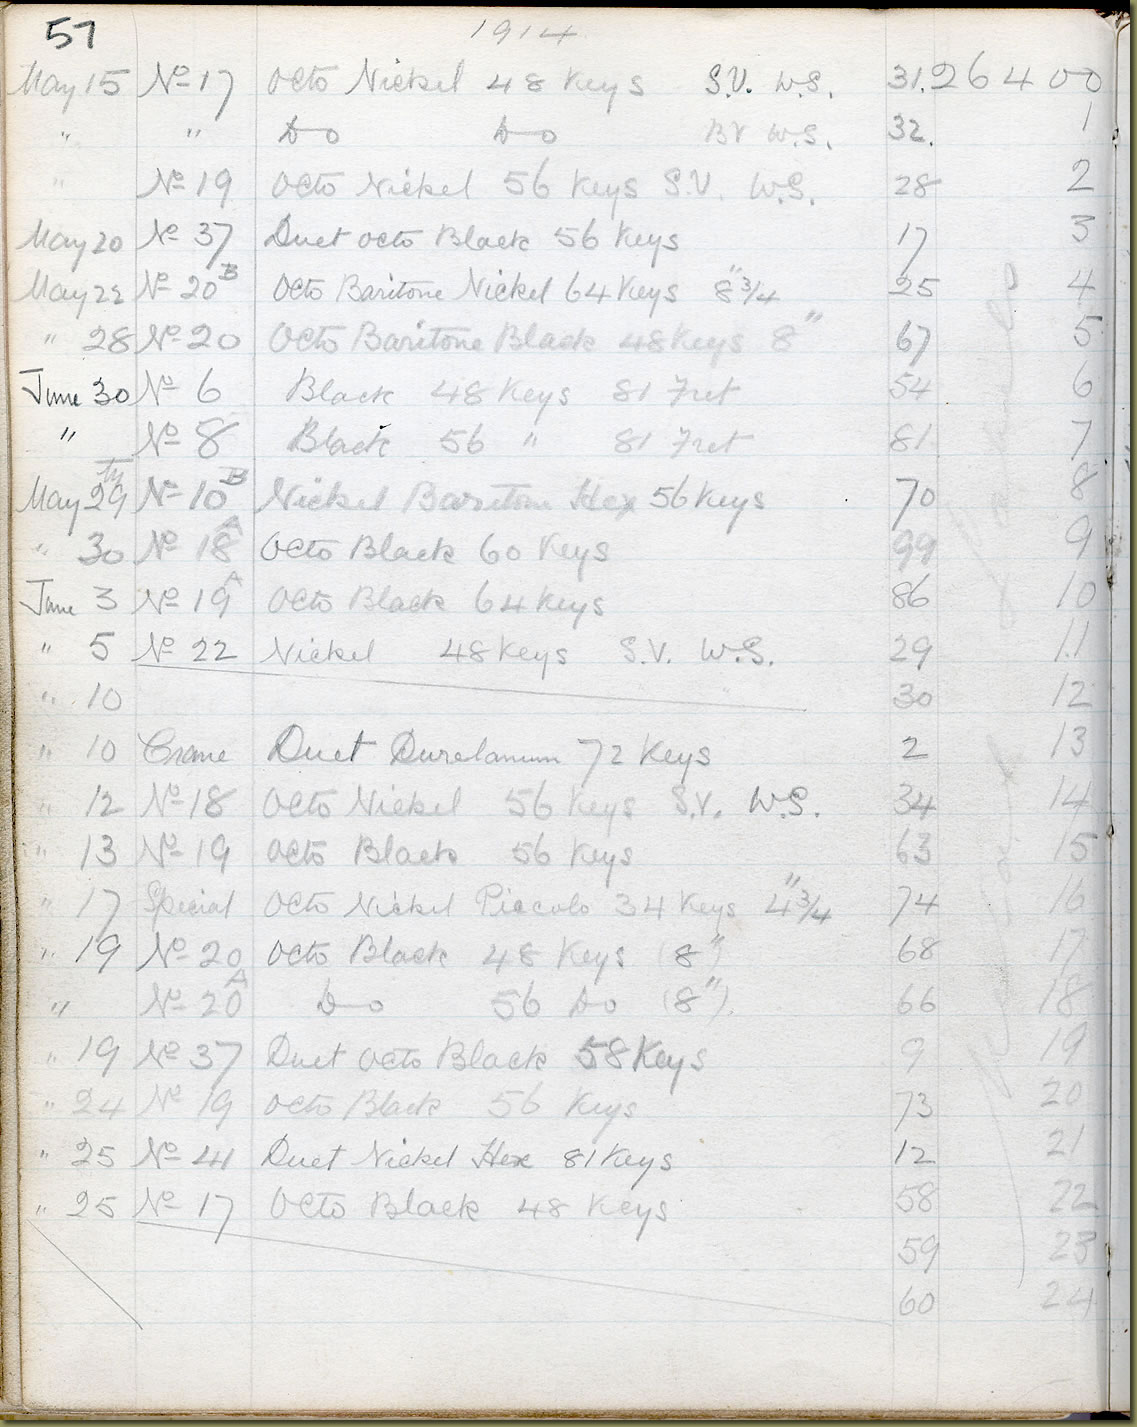 57 1914
May 15 No 17 Octo Nickel 48 Keys S.V. W.S. 31. 26400
" " Do Do BV W.S. 32. 1
" No 19 Octo Nickel 56 Keys S.V. W.S. 28 2
May 20 No 37 Duet Octo Black 56 Keys 17 3
May 22 No 20B Octo Baritone Nickel 64 Keys 8 3/4" 25 4
" 28 No 20 Octo Baritone Black 48 Keys 8" 67 5
June 30 No 6 Black 48 Keys 81 Fret 54 6
" No 8 Black 56 " 81 Fret 81 7
May 29 No 10B Nickel Baritone Hex 56 Keys 70 8
" 30 No 18A Octo Black 60 Keys 99 9
June 3 No 19A Octo Black 64 Keys 86 10
" 5 No 22 Nickel 48 Keys S.V. W.S. 29 11
" 10 30 12
" 10 Crane Duet Duralamum 72 Keys 2 13
" 12 No 18 Octo Nickel 56 Keys S.V. W.S. 34 14
" 13 No 19 Octo Black 56 Keys 63 15
" 17 Special Octo Nickel Piccolo 34 Keys 4 3/4" 74 16
" 19 No 20 Octo Black 48 Keys (8") 68 17
" No 20A Do 56 Do (8"). 66 18
" 19 No 37 Duet Octo Black 58 Keys 9 19
" 24 No 19 Octo Black 56 Keys 73 20
" 25 No 41 Duet Nickel Hex 81 Keys 12 21
" 25 No 17 Octo Black 48 Keys 58 22
59 23
60 24